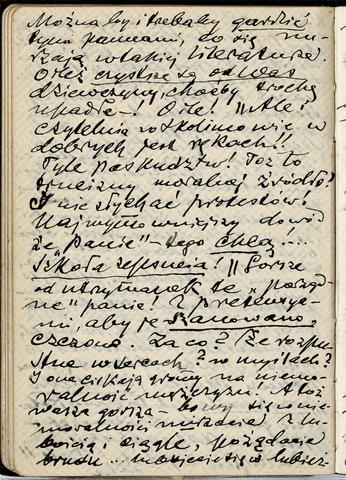 Można by i trzeba by gardzić
tymi paniami, co się nu-
rzają w takiej literaturze.
Oileż czystsze są od Was
dziewczyny, choćby trochę
upadłe –! O ile! "Ale
czytelnia w Skolimowie w
dobrych jest rękach!!
Tyle paskudztw! Toż to
trucizny moralnej źródło!
I nie słychać protestów!
Najwymowniejszy dowód
że „panie" – tego chcą....
Szkoła zepsucia! "Gorsze
od utrzymanek te „porząd-
ne" panie! Z pretensja-
mi, aby je szanowano,
czczono. Za co? Że rozpu-
stne w sercach? w myślach?
I one ciskają gromy na niemo-
ralność mężczyzn! A toż
wasza gorsza – bo wy się o nie-
moralności
ciągle, pożądacie
brudu ... się w lubież-